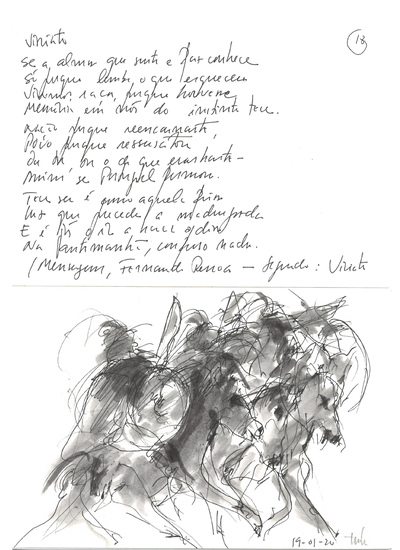 Viriato
Se a alma que sente e faz conhece
Só porque lembra o que esqueceu
Vivemos, raça, porque houvesse
Memória em nós do instinto teu.
Nação porque reencarnaste,
Povo porque ressuscitou
Ou tu, ou o de que eras haste —
Assim se Portugal formou.
Teu ser é como aquela fria
Luz que precede a madrugada
E é já o ir a haver o dia
Na antemanhã, confuso nada.
(Mensagem, Fernando Pessoa — Segundo: Viriato
19-01-20